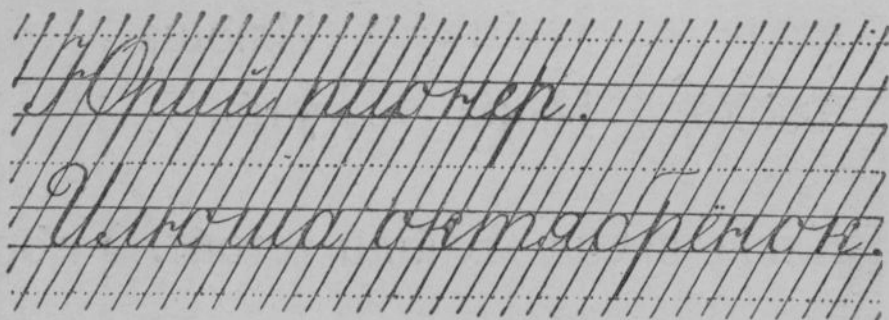 Юрий пионер.
Илюша октябрёнок.